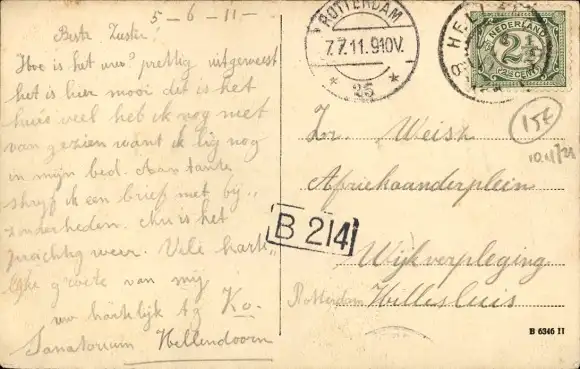 5-6-11-
Beste Zuster!
Hoe is het uw? prettig uitgeweest
het is hier mooi dit is het
huis veel heb ik nog niet
van gezien want ik lig nog
in mijn bed. Aan tante
schrijf ik een brief met bij„
zonderheden. Nu is het
prachtig weer. Vele hart„
lijke groete van mij
uw hartelijk Ko.
Sanatorium Hellendoorn
ROTTERDAM
7.7.11.9-10V.
25
NEDERLAND
2½
CENT
15€
Zr. Weisz
Afriekaanderplein
B 214
Wijkverpleging
Rotterdam Hillesluis
B 6346 II